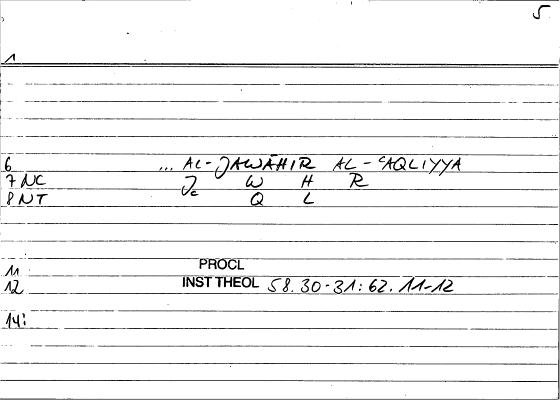 5
1
6 ... AL-JAWĀHIR AL-ʿAQLIYYA
7 NC J W H R
8 NT ʿ Q L
11 PROCL
12 INST THEOL 58.30-31:62.11-12
14: